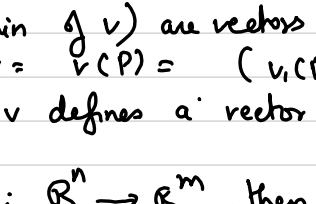 in of v) are vectors
= v(P) = (v,(P
v defines a vector
: R^n → R^m then